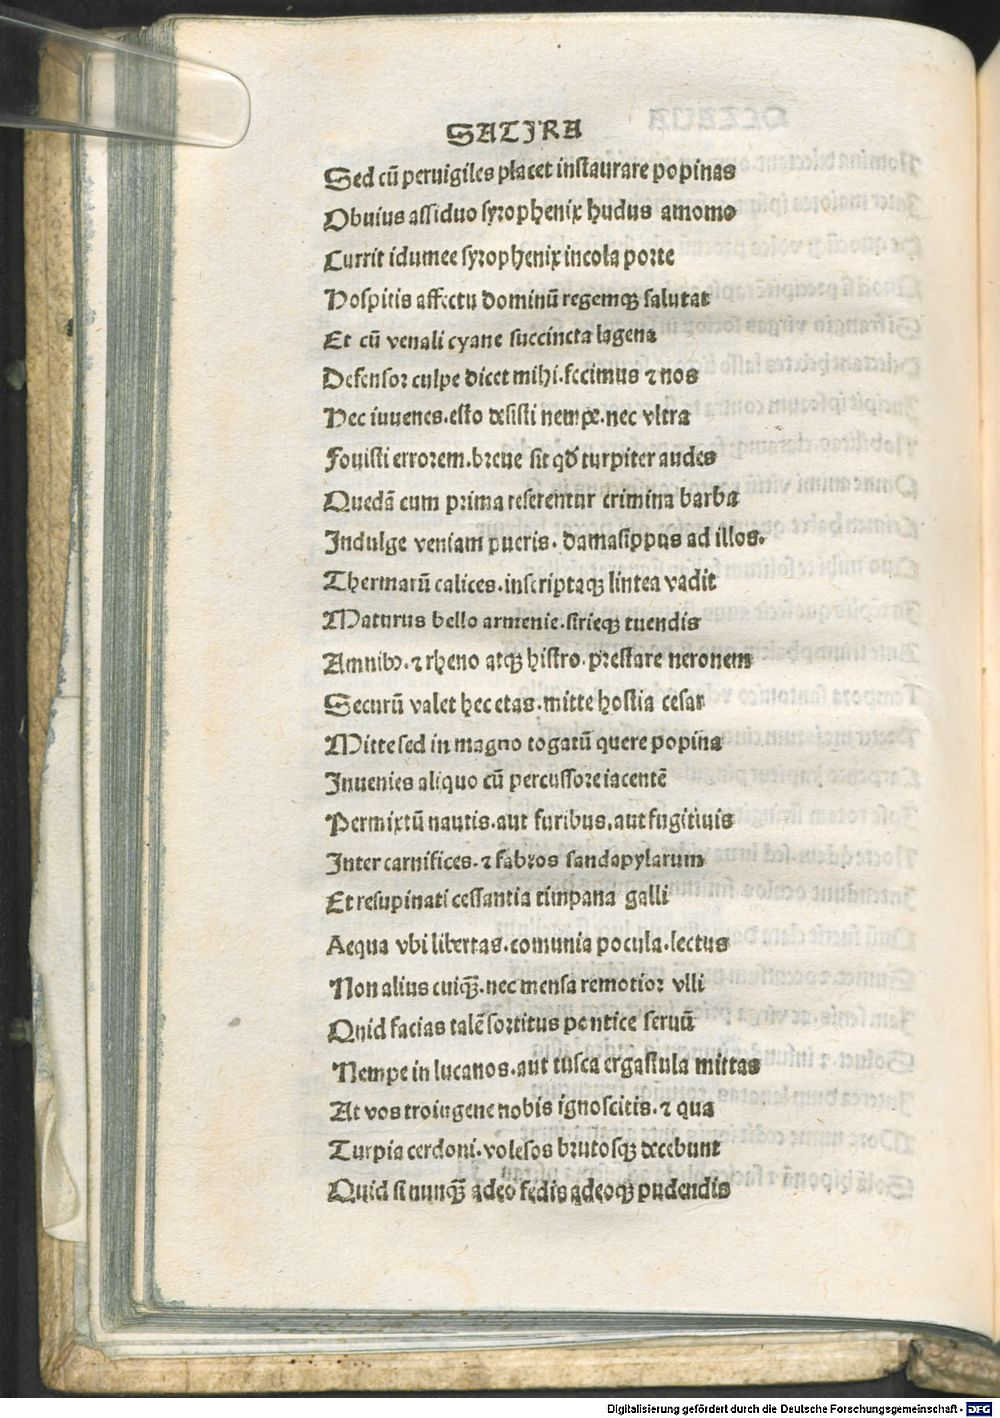 SATIRA
Sed cū peruigiles placet instaurare popinas
Obuius assiduo syrophenix hudus amomo
Currit idumee syrophenix incola porte
Hospitis affectu dominū regemqꝫ salutat
Et cū venali cyane succincta lagena
Defensor culpe dicet mihi.fecimus ⁊ nos
Hec iuuenes.esto desisti nempe.nec vltra
Fouisti errorem.breue sit qđ turpiter audes
Quedā cum prima resecentur crimina barba
Indulge veniam pueris. damasippus ad illos.
Thermarū calices.inscriptaqꝫ lintea vadit
Maturus bello armenie.sirieqꝫ tuendis
Amnibꝫ.⁊ rheno atqꝫ histro.prestare neronem
Securū valet hec etas.mitte hostia cesar
Mitte sed in magno togatū quere popina
Inuenies aliquo cū percussore iacentē
Permixtū nautis.aut furibus.aut fugitiuis
Inter carnifices.⁊ fabros sandapylarum
Et resupinati cessantia timpana galli
Aequa vbi libertas.comunia pocula.lectus
Non alius cuiqꝫ̄.nec mensa remotior vlli
Quid facias talē sortitus pontice seruū
Nempe in lucanos.aut tusca ergastula mittas
At vos troiugene nobis ignoscitis.⁊ qua
Turpia cerdoni.volesos brutosqꝫ decebunt
Quid si nunqꝫ̄ adeo fedis adeoqꝫ pudendis
Digitalisierung gefördert durch die Deutsche Forschungsgemeinschaft - DFG